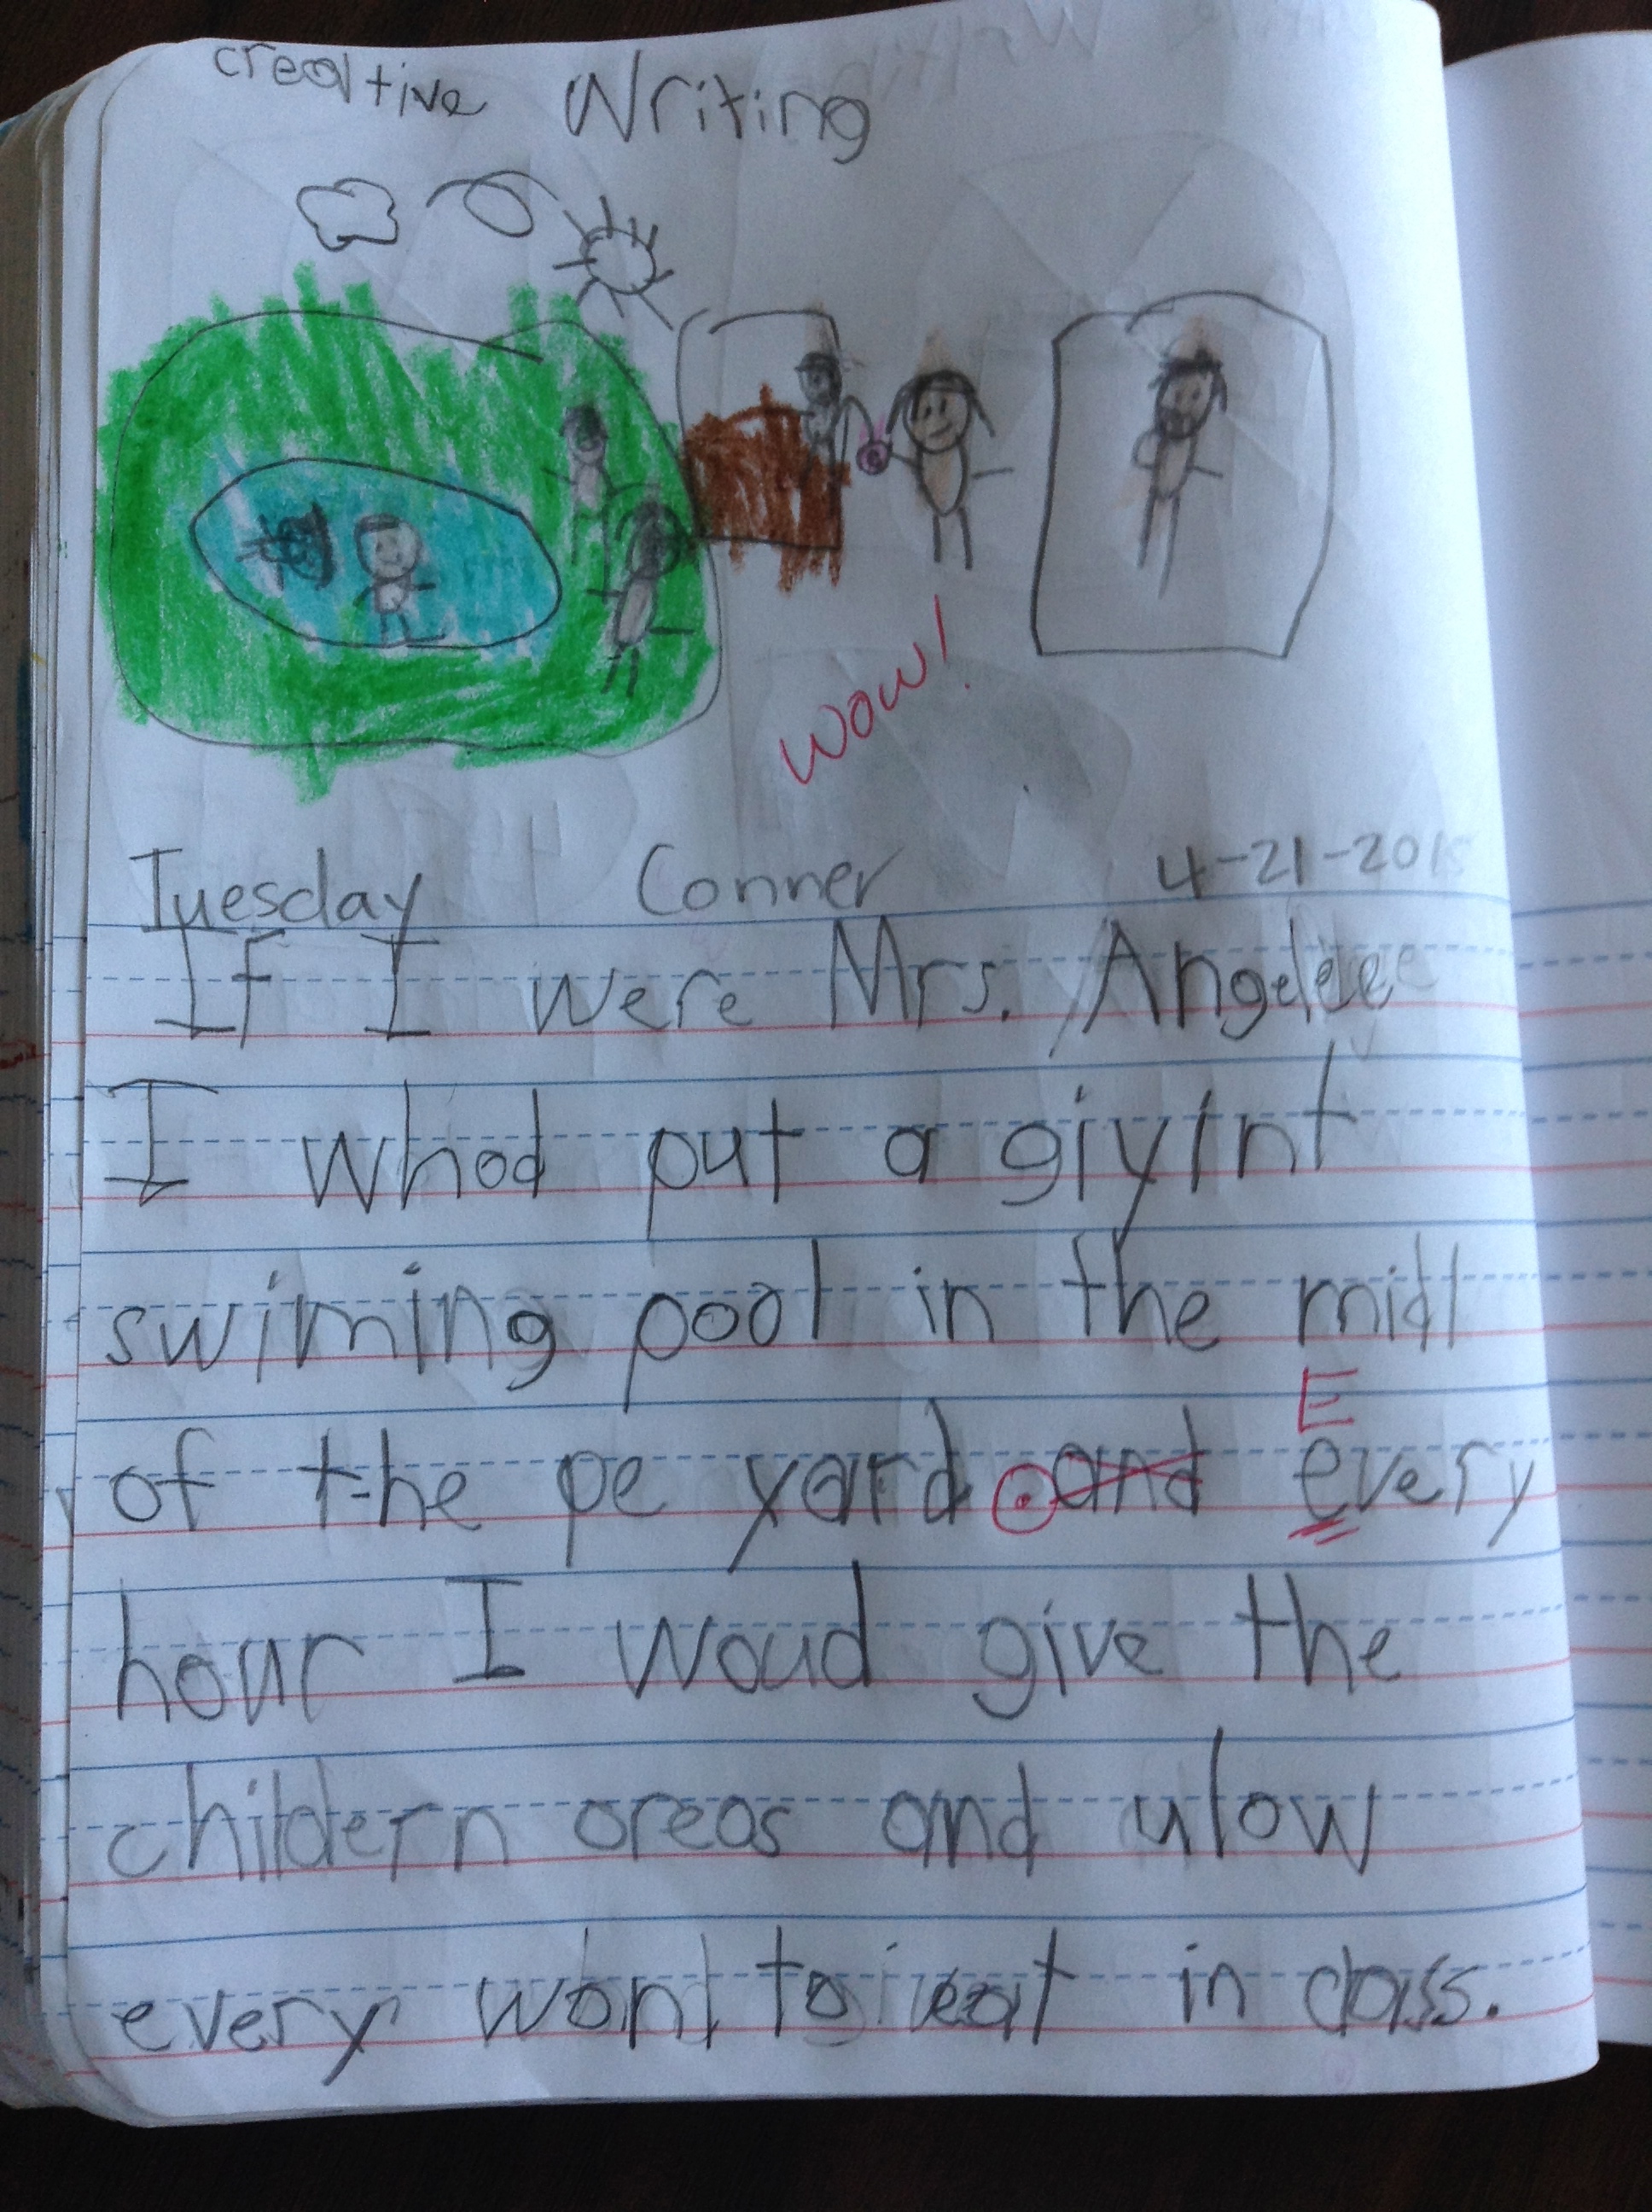 creative Writing
wow!
Tuesday Conner 4-21-2015
If I were Mrs. Angelee
I whod put a giyint
swiming pool in the midl
E
of the pe yard . and every
hour I woud give the
childern oreos and ulow
every wont to eat in class.